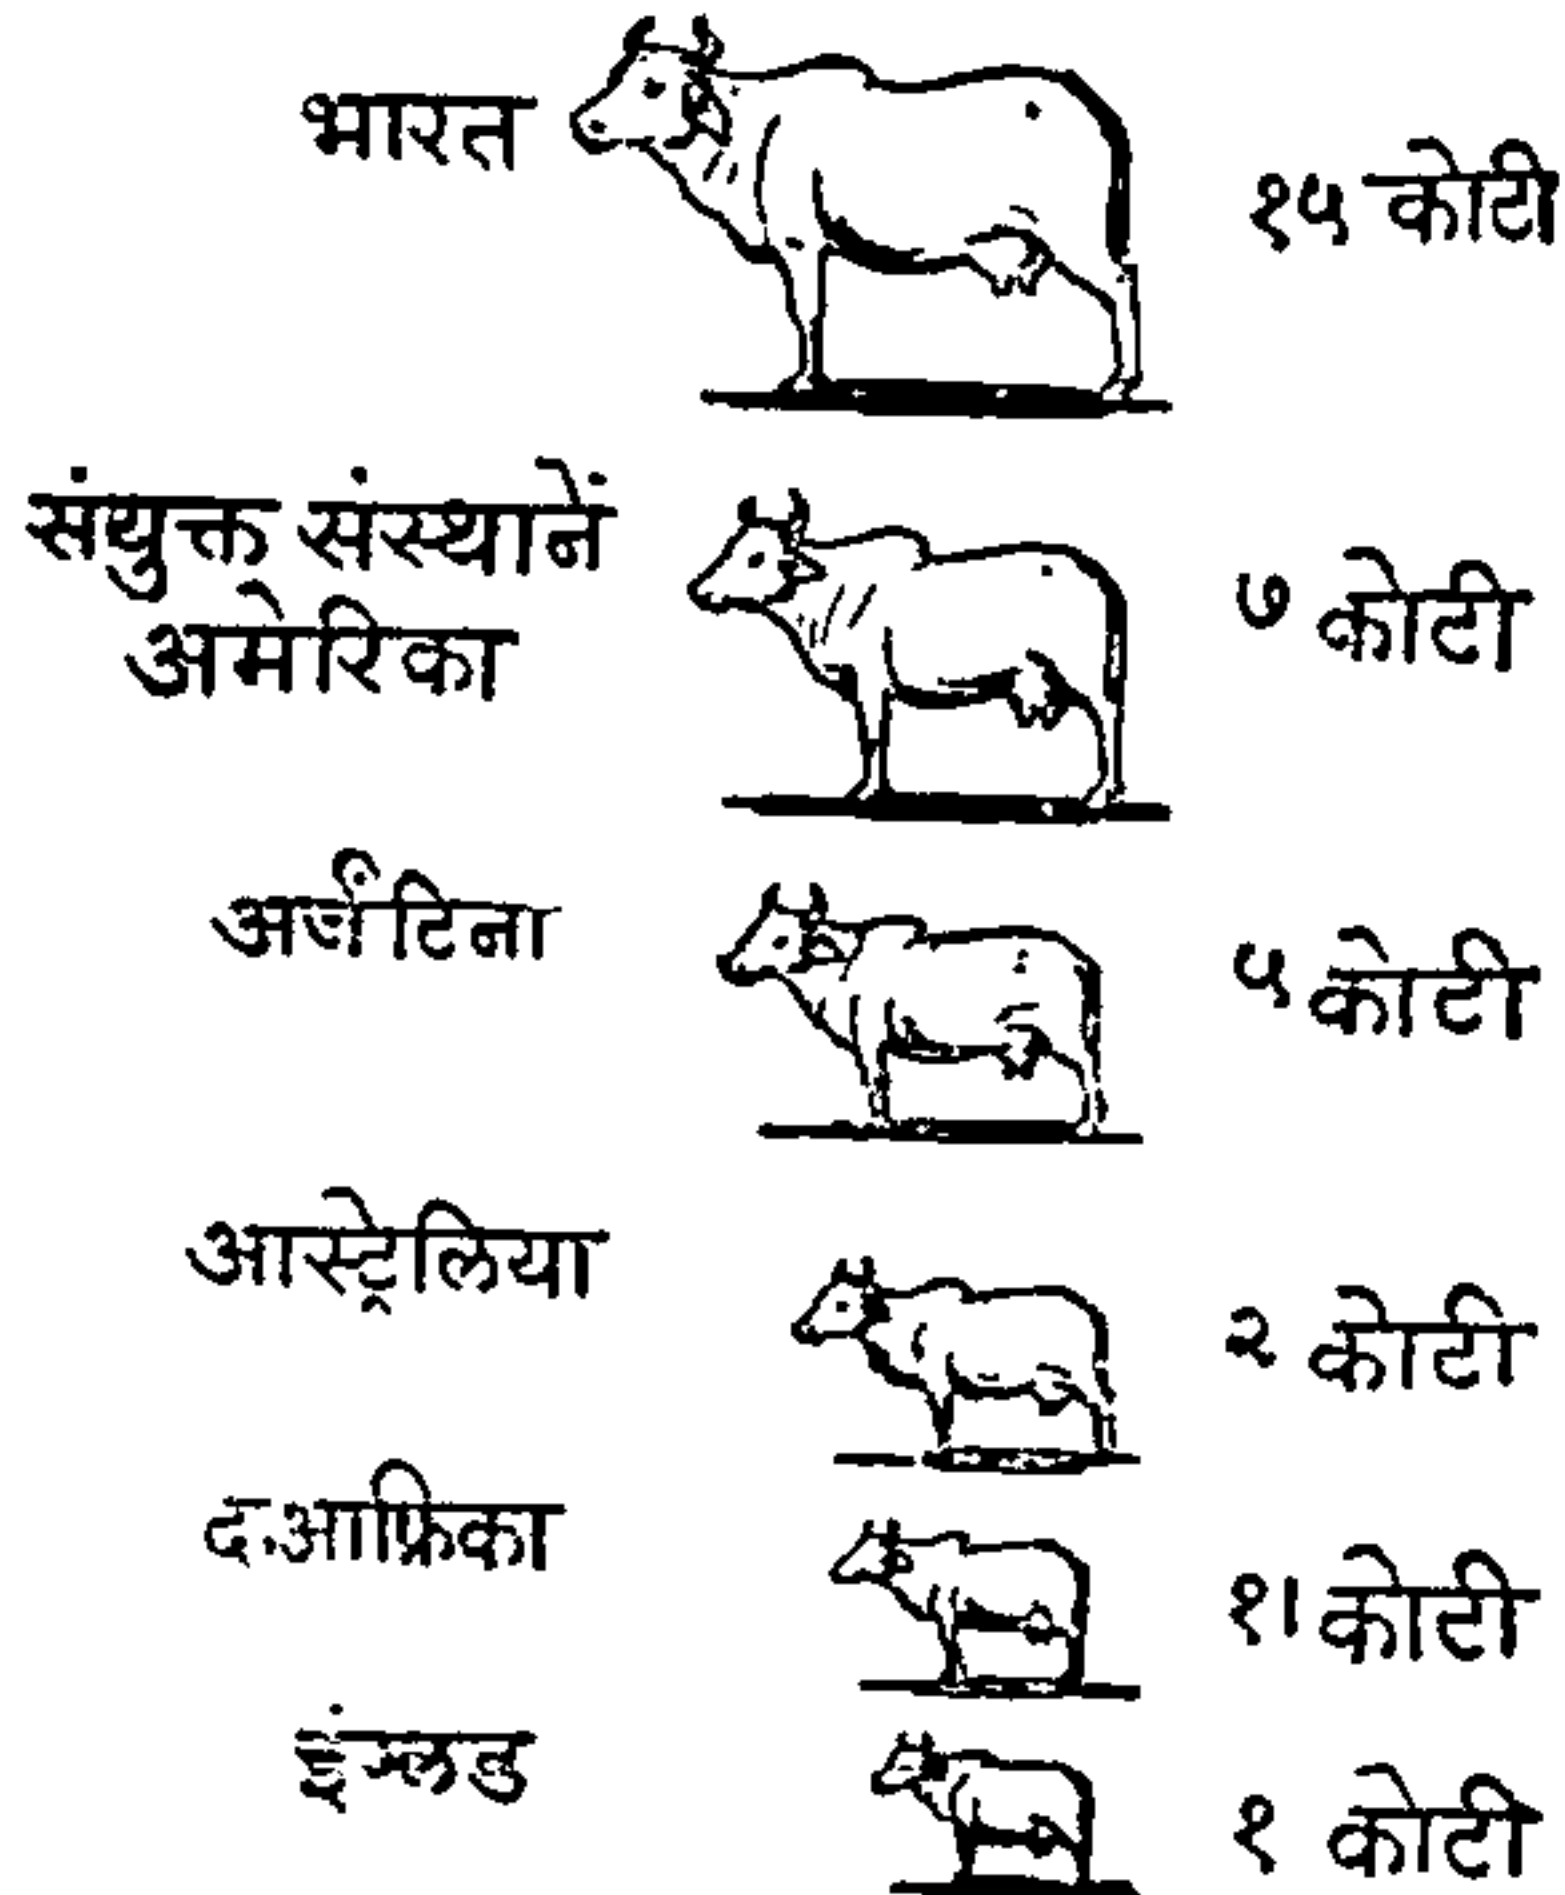 भारत
१५ कोटी
संयुक्त संस्थानें
अमेरिका
७ कोटी
अर्जेंटिना
५ कोटी
आस्ट्रेलिया
२ कोटी
द.आफ्रिका
१। कोटी
इंग्लड
१ कोटी